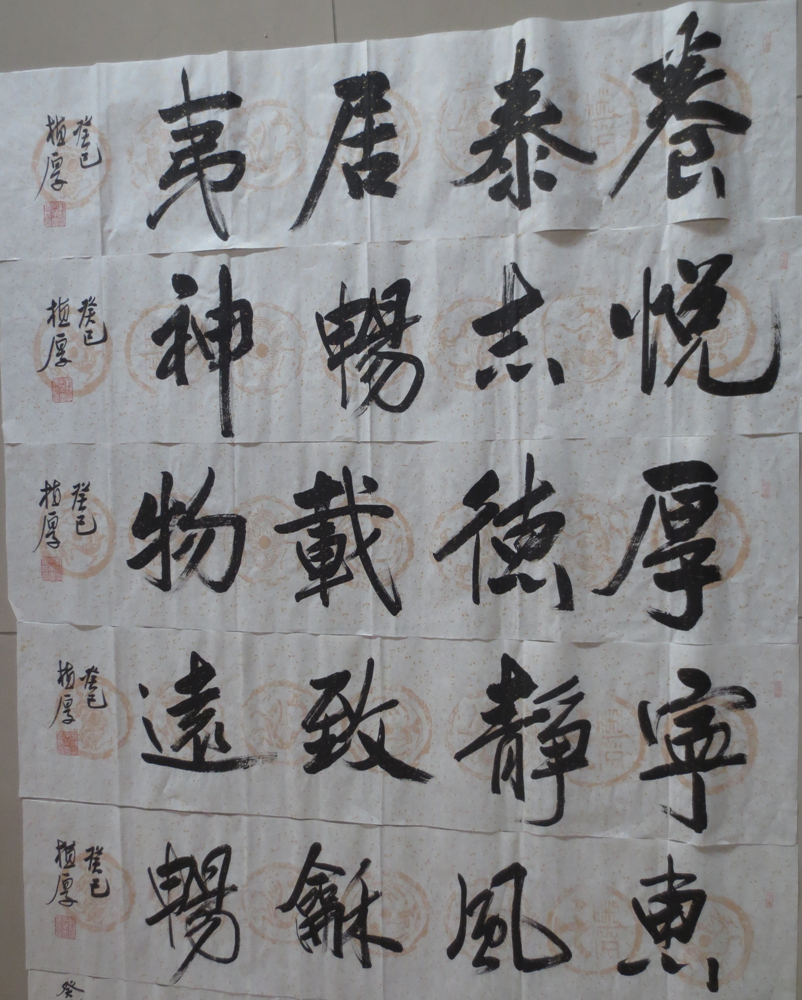 養泰居夷
癸巳
植厚
悦志暢神
癸巳
植厚
厚徳載物
癸巳
植厚
寧靜致遠
癸巳
植厚
惠風龢暢
癸巳
植厚
癸